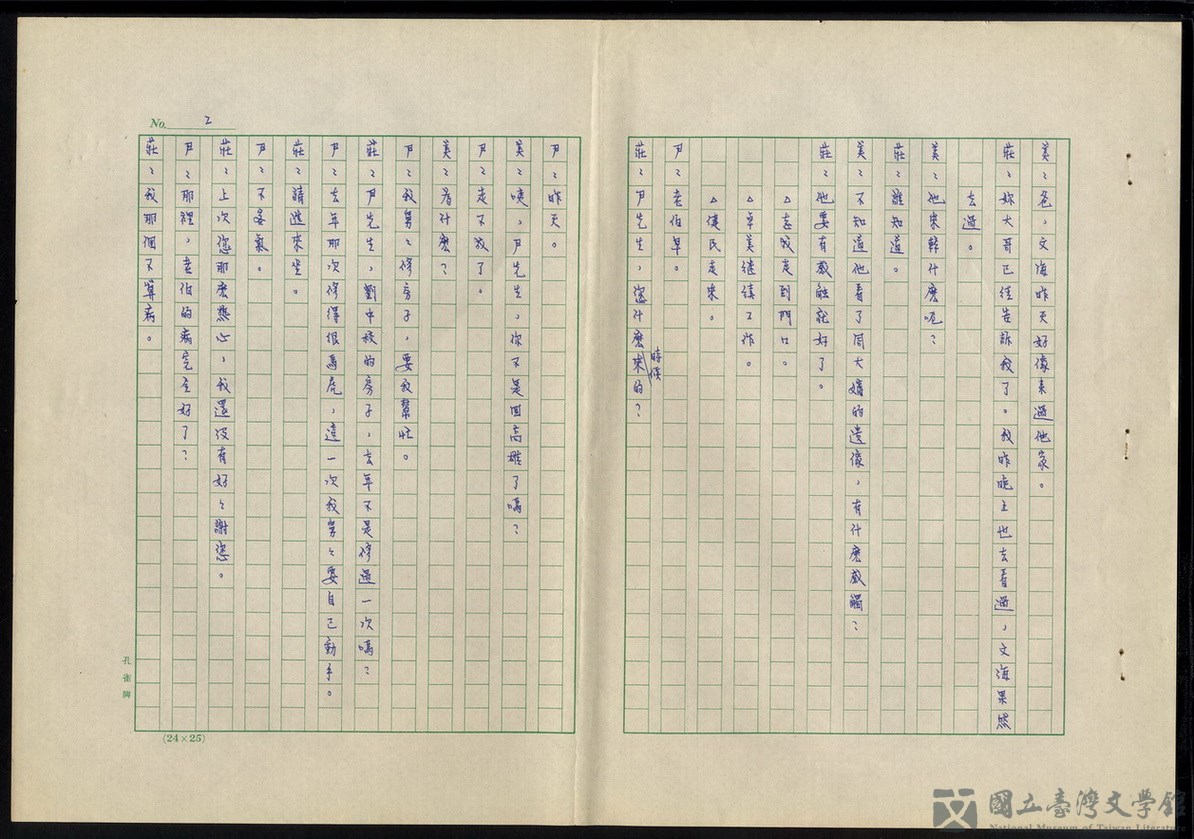 美：爸，文海昨天好像來過他家。
莊：妳大哥已經告訴我了。我昨晚上也去看過，文海果然
去過。
美：他來幹什麼呢？
莊：誰知道。
美：不知道他看了周大嬸的遺像，有什麼感觸？
莊：他要有感触就好了。
△志成走到門口。
△卓美继续工作。
△健民走來。
尹：老伯早。
莊：尹先生，您什麼時候來的？
No. 2
尹：昨天。
美：咦，尹先生，你不是回高雄了嗎？
尹：走不成了。
美：為什麼？
尹：我舅舅：修房子，要我幫忙。
莊：尹先生，劉中校的房子，去年不是修過一次嗎？
尹：去年那次修得很馬虎，這一次我舅：要自己動手。
莊：請進來坐。
尹：不客氣。
莊：上次您那麼熱心，我還沒有好：謝您。
尹：那裡，老伯的病完全好了？
莊：我那個不算病。
孔雀牌
(24×25)
國立臺灣文學館
National Museum of Taiwan Literature